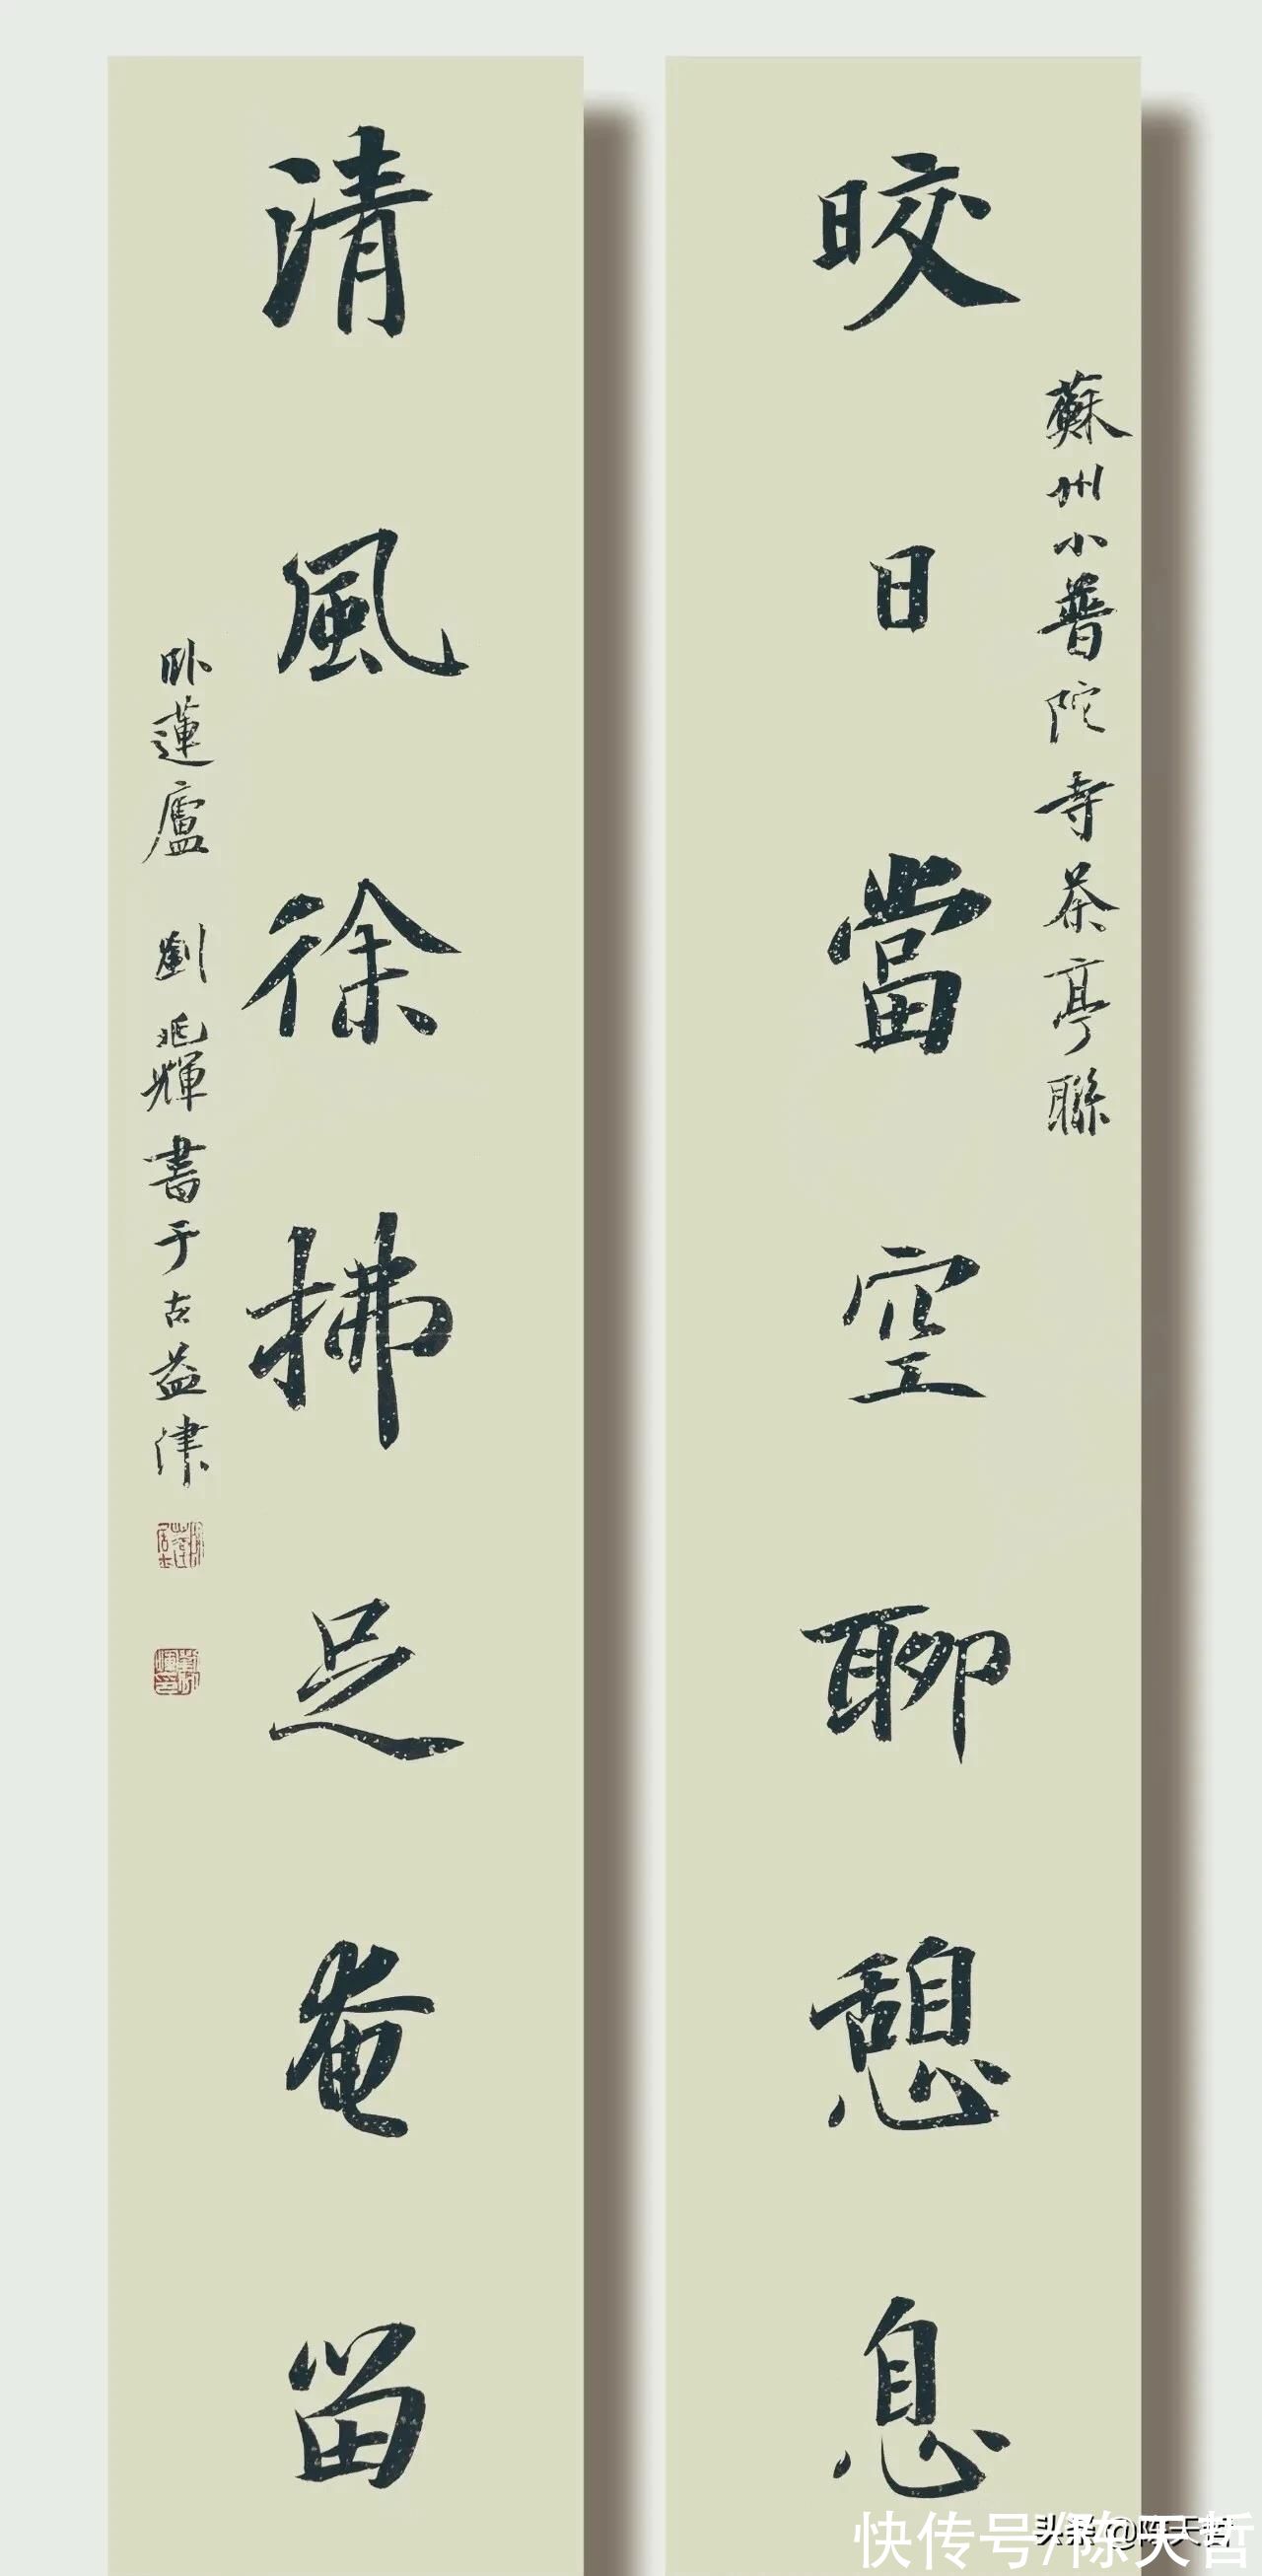 蘇州小普陀寺茶亭聯
晈日當空聊憩息
清風徐拂足奄留
卧蓮廬 劉兆輝書于古益津
快传号/陈天哲
头条@陈天哲